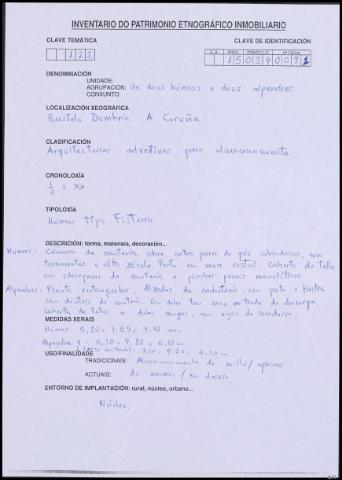 INVENTARIO DO PATRIMONIO ETNOGRÁFICO INMOBILIARIO
CLAVE TEMÁTICA
CLAVE DE IDENTIFICACIÓN
122
C.A. PROV. CONCELLO Nº FICHA
DENOMINACIÓN
UNIDADE:
AGRUPACION: de dous hórreos e dous alpendres.
CONXUNTO:
LOCALIZACIÓN XEOGRÁFICA
Bustelo Dumbría. A Coruña
CLASIFICACIÓN
Arquitecturas adxetivas para almacenamento.
CRONOLOXÍA
1/2 s. XX
TIPOLOXÍA
Hórreo tipo Fisterra.
DESCRICIÓN: forma, materiais, decoración...
Hórreos: Cámara de cantería sobre catro pares de pés cilíndricos, con
tornarratos e alto zócolo. Porta en muro costal. Cuberta de tella
Alpendres: Planta rectangular. Alzados de cachotería con porta e fiestra
con dinteis de cantería. Un deles ten arco metrado de descarga.
Cuberta de tella a dúas augas, con vigas de madeira.
MEDIDAS XERAIS
Hórreo: 5,20 - 1,65 - 4,10 m.
Alpendre
USO/FINALIDADE
TRADICIONAIS: Almacenamento de millo / apeiros
ACTUAIS: As mesmas / en desuso
ENTORNO DE IMPLANTACIÓN: rural, núcleo, urbano...
Núcleo.